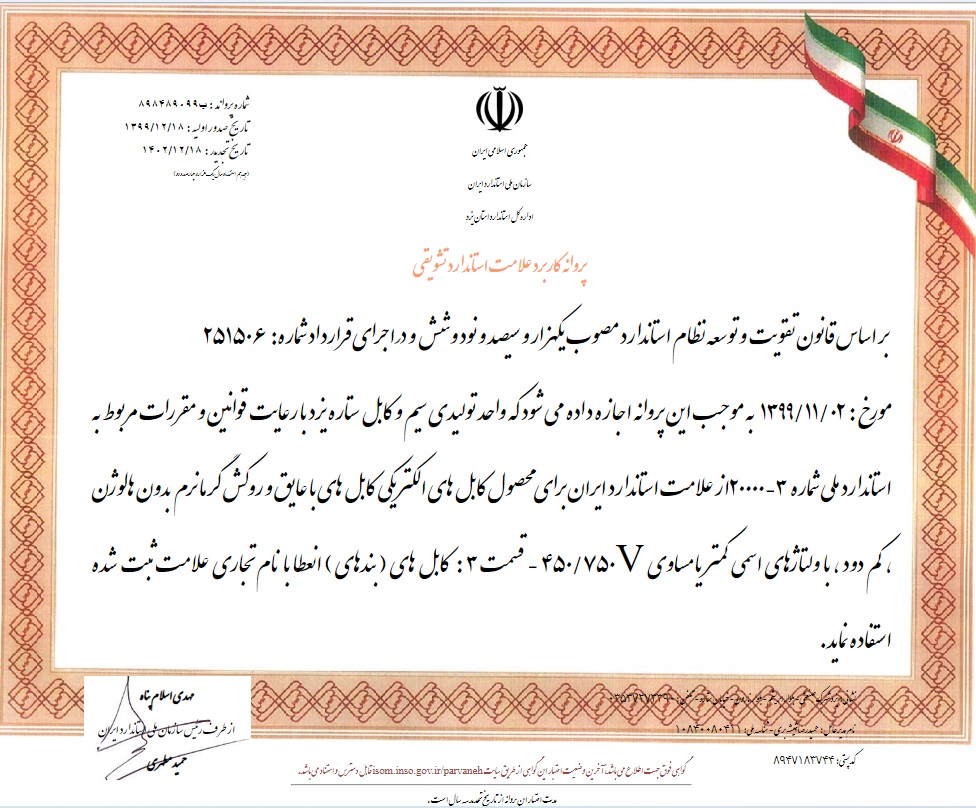 شماره پروانه : ب۸۹۸۴۸۹۰۹۹
تاریخ صدور اولیه : ۱۳۹۹/۱۲/۱۸
تاریخ تجدید : ۱۴۰۲/۱۲/۱۸
جمهوری اسلامی ایران
سازمان ملی استاندارد ایران
اداره کل استاندارد استان یزد
پروانه کاربرد علامت استاندارد تشویقی
بر اساس قانون تقویت و توسعه نظام استاندارد مصوب یکهزار و سیصد و نود و شش و در اجرای قرارداد شماره : ۲۵۱۵۰۶
مورخ : ۱۳۹۹/۱۱/۰۲ به موجب این پروانه اجازه داده می شود که واحد تولیدی سیم و کابل ستاره یزد با رعایت قوانین و مقررات مربوط به
استاندارد ملی شماره ۳-۲۰۰۰۰ از علامت استاندارد ایران برای محصول کابل های الکتریکی کابل های با عایق و روکش گرمانرم بدون هالوژن
، کم دود ، با ولتاژهای اسمی کمتر یا مساوی ۴۵۰/۷۵۰V - قسمت ۳ : کابل های ( بندهای ) انعطا با نام تجاری علامت ثبت شده
استفاده نماید.
مهدی اسلام پناه
از طرف رئیس سازمان ملی استاندارد ایران
کدپستی: ۸۹۴۷۱۸۳۷۴۴
گواهی فوق جهت اطلاع می باشد، آخرین وضعیت اعتبار این گواهی از طریق سایت isom.inso.gov.ir/parvaneh قابل دسترس و استناد می باشد.
مدت اعتبار این پروانه از تاریخ تجدید سه سال است.